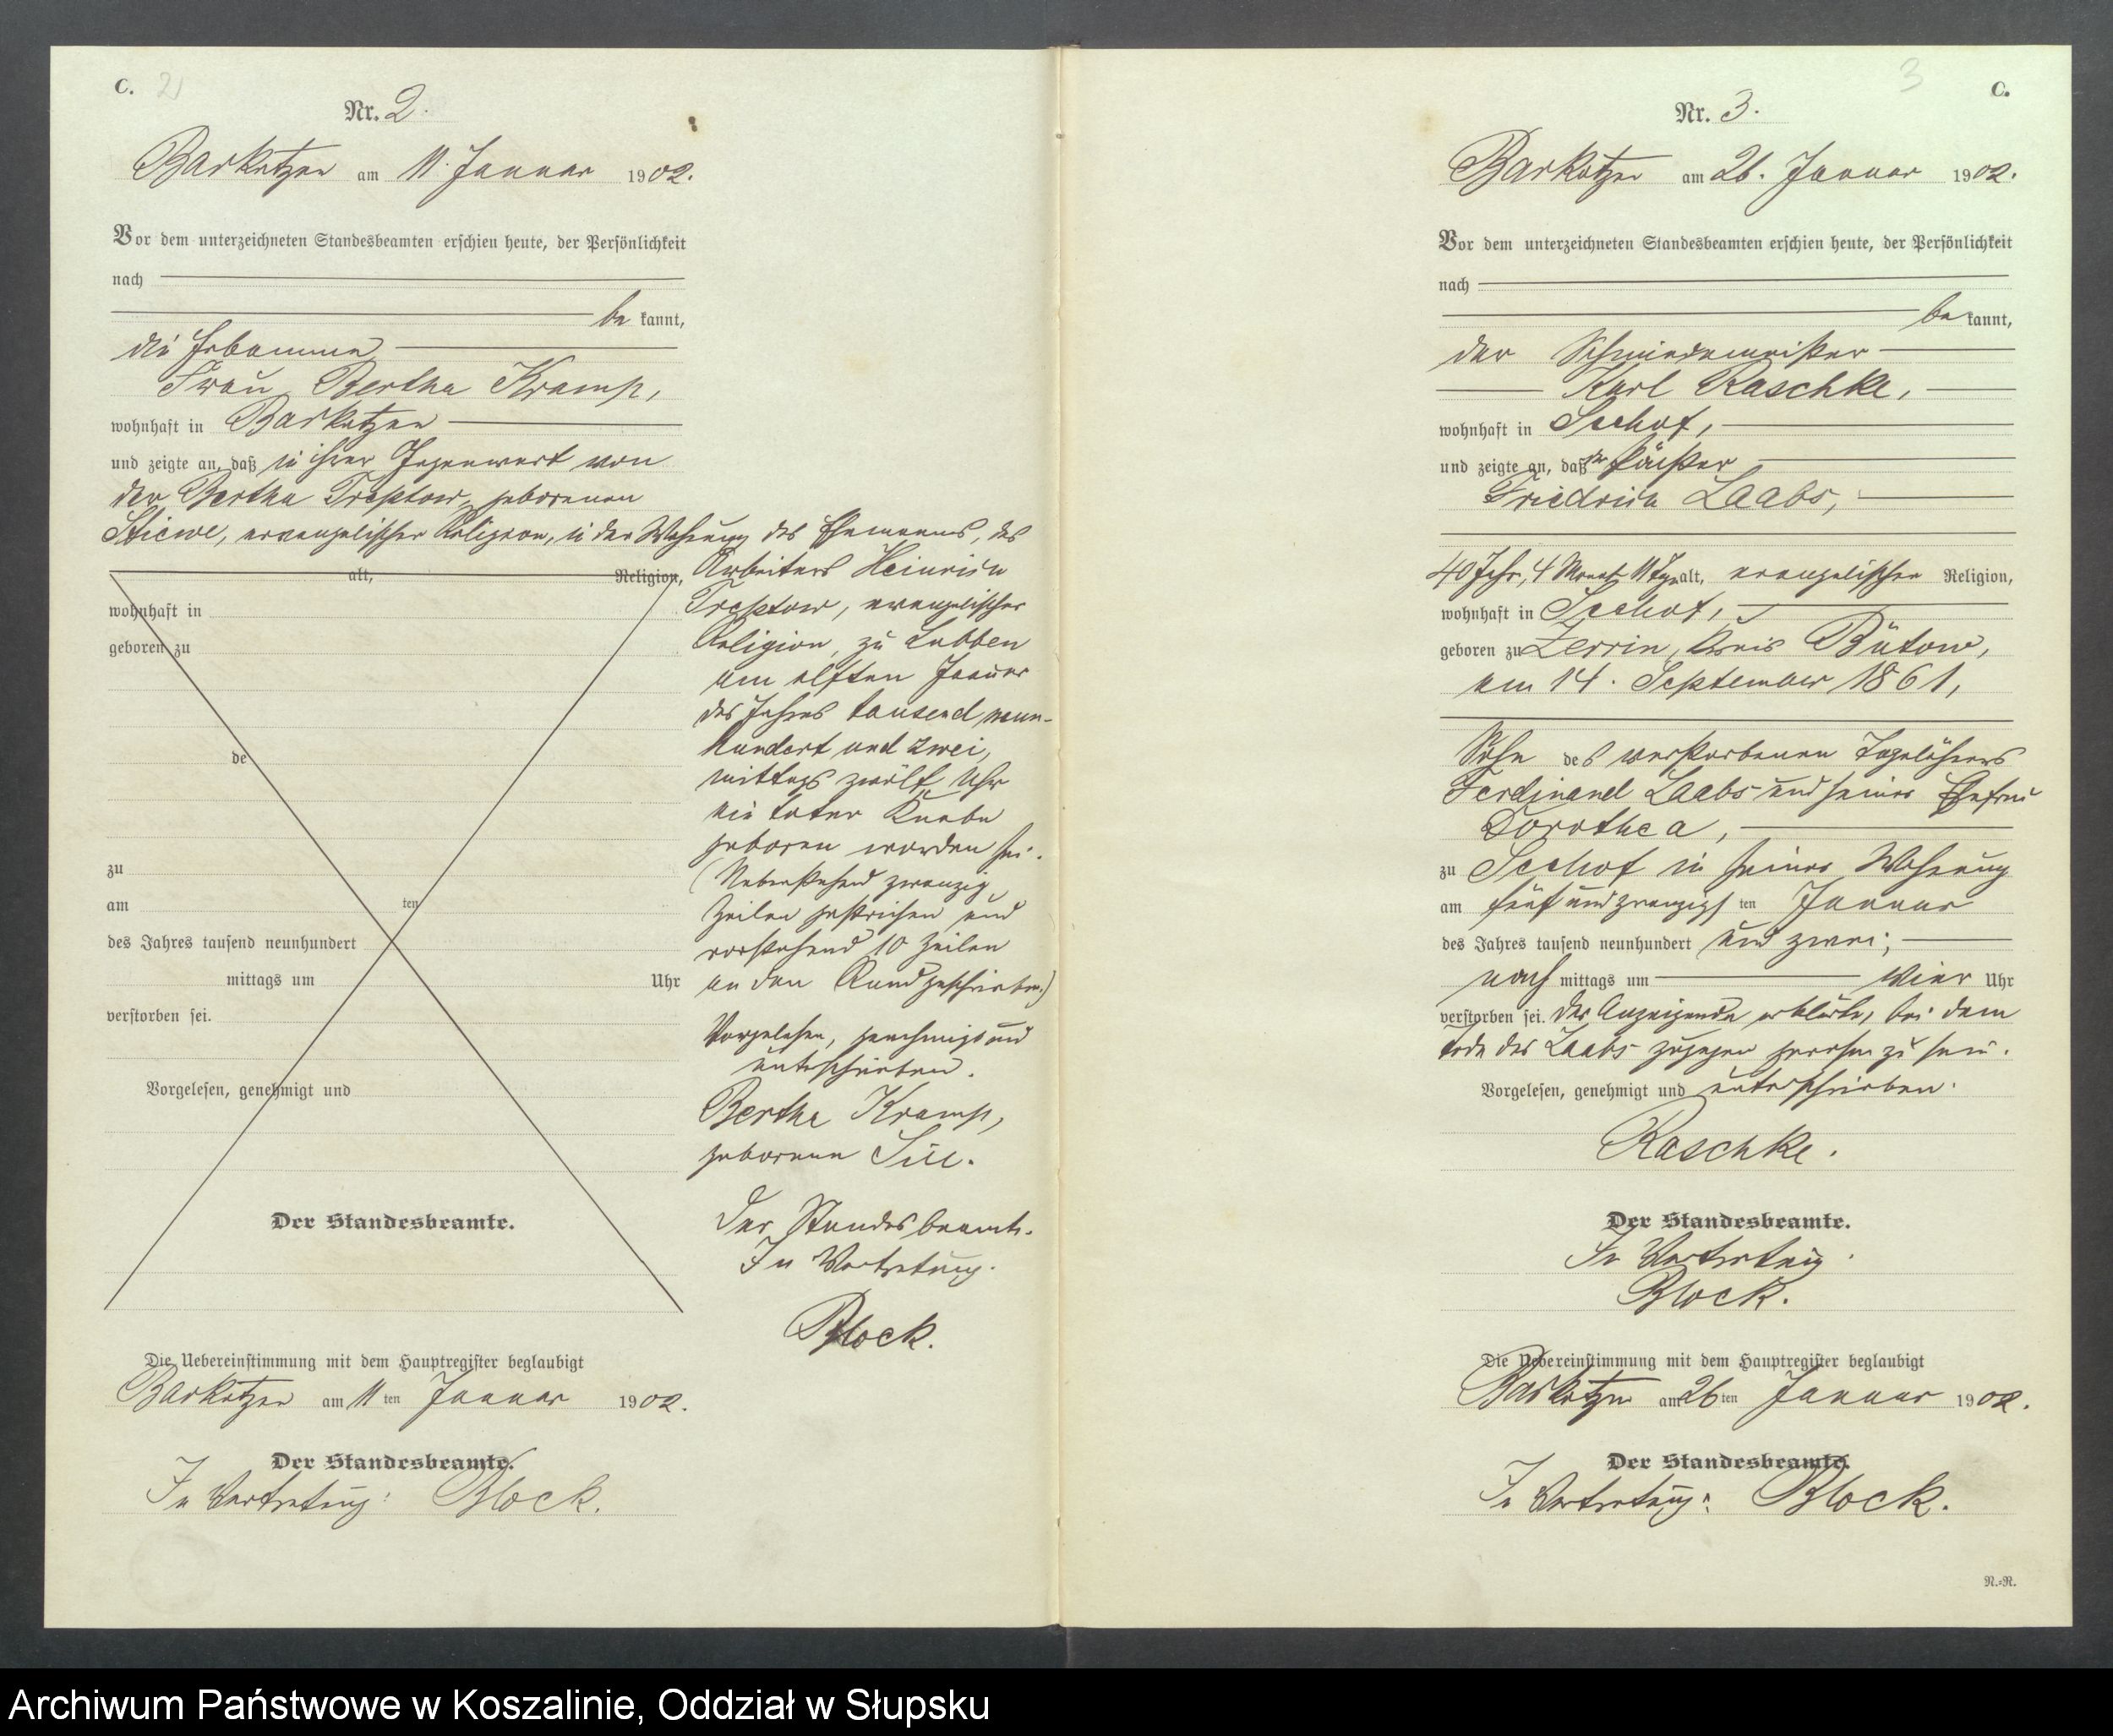 C. 2
Nr. 2.
Barkotzen am 11. Januar 1902.
Vor dem unterzeichneten Standesbeamten erschien heute, der Persönlichkeit
nach
be kannt,
die Hebamme
Frau Bertha Kramp,
wohnhaft in Barkotzen
und zeigte an, daß in ihrer Gegenwart von
der Bertha Treptow, geborenen
Stiewe, evangelischer Religion, in der Wohnung des Ehemanns, des
alt, Religion,
wohnhaft in
geboren zu
de
zu
am ten
des Jahres tausend neunhundert
mittags um Uhr
verstorben sei.
Vorgelesen, genehmigt und
Der Standesbeamte.
Arbeiters Heinrich
Treptow, evangelischer
Religion, zu Lubben
am elften Januar
des Jahres tausend neun-
hundert und zwei,
mittags zwölf Uhr
ein toter Knabe
geboren worden sei.
(Nebenstehend zwanzig
Zeilen gestrichen und
vorstehend 10 Zeilen
an den Rand geschrieben.)
Vorgelesen, genehmigt und
unterschrieben.
Bertha Kramp,
geborene
Der Standesbeamte.
In Vertretung.
Block.
Die Uebereinstimmung mit dem Hauptregister beglaubigt
Barkotzen am 11 ten Januar 1902.
Der Standesbeamte.
In Vertretung: Block.
3 C.
Nr. 3.
Barkotzen am 26. Januar 1902.
Vor dem unterzeichneten Standesbeamten erschien heute, der Persönlichkeit
nach
be kannt,
der Schmiedemeister
Karl Raschke,
wohnhaft in Seehof,
und zeigte an, daß der
Friedrich Laabs,
40 Jahr, 4 Monat 11 Tage alt, evangelischer Religion,
wohnhaft in Seehof,
geboren zu Zerrin, Kreis Bütow,
am 14. September 1861,
Sohn des verstorbenen Tagelöhners
Ferdinand Laabs und seiner Ehefrau
Dorothea,
zu Seehof in seiner Wohnung
am fünfundzwanzigs ten Januar
des Jahres tausend neunhundert und zwei,
nach mittags um vier Uhr
verstorben sei. Der Anzeigende erklärte, bei dem
Tode des Laabs zugegen gewesen zu sein.
Vorgelesen, genehmigt und unterschrieben.
Raschke.
Der Standesbeamte.
In Vertretung.
Block.
Die Uebereinstimmung mit dem Hauptregister beglaubigt
Barkotzen am 26 ten Januar 1902.
Der Standesbeamte.
In Vertretung: Block.
N.-R.
Archiwum Państwowe w Koszalinie, Oddział w Słupsku